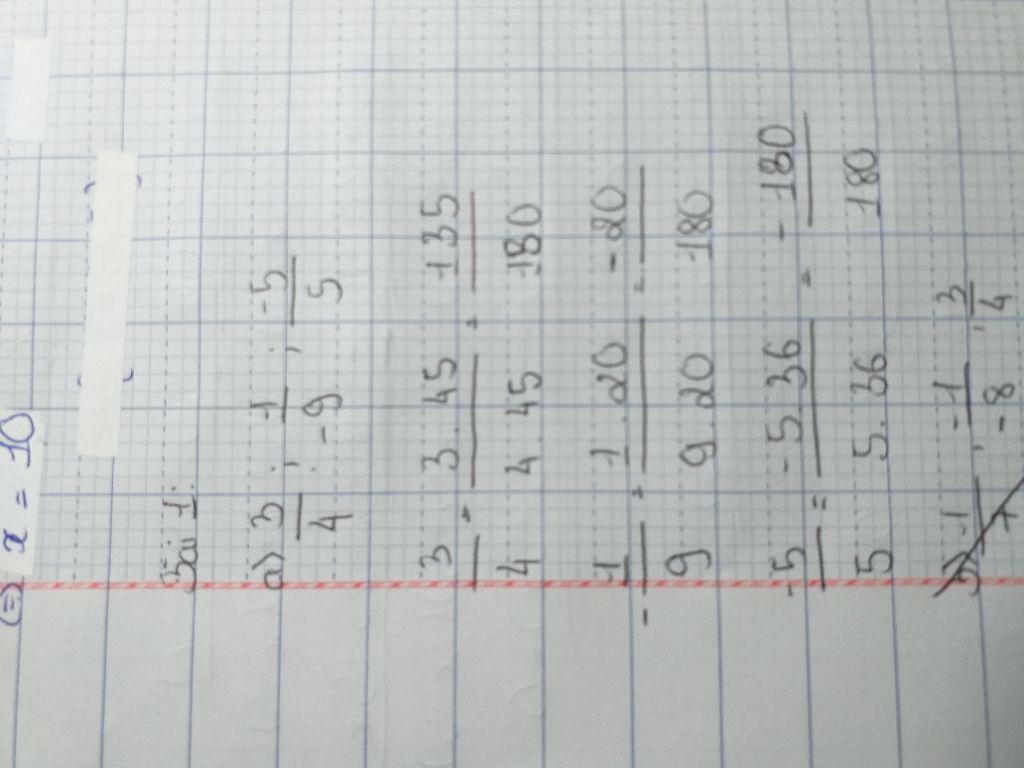 =) x = 10
Bài 1:
a) 3/4 ; 1/-9 ; -5/5
3/4 = 3.45/4.45 = 135/180
-1/9 = -1.20/9.20 = -20/180
-5/5 = -5.36/5.36 = -180/180
-1/-8 , 3/4